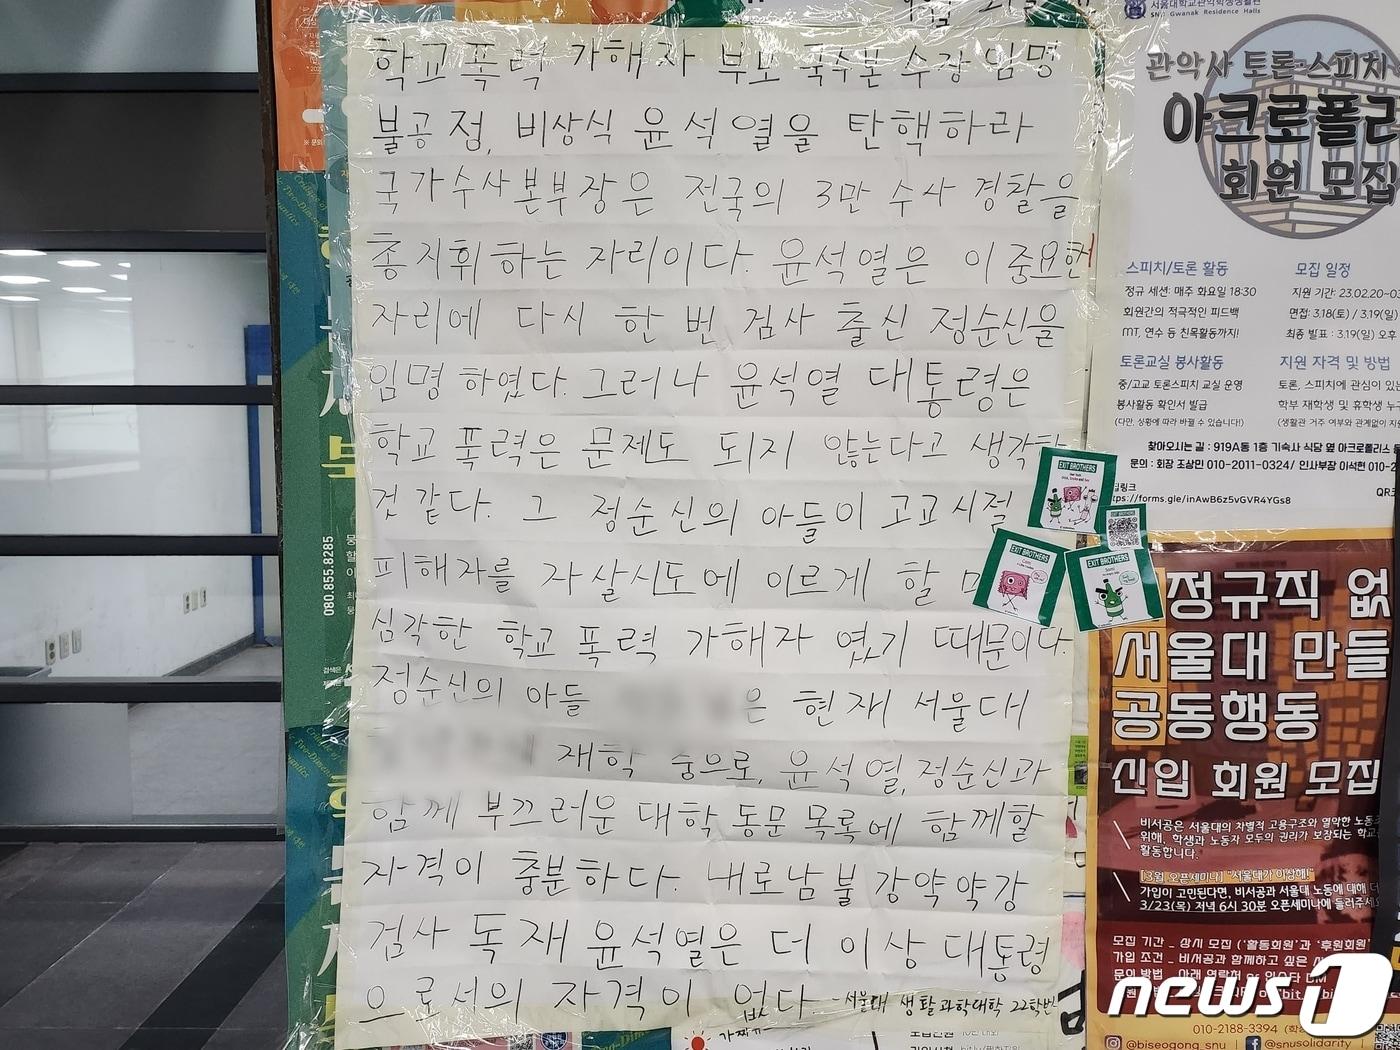 학교폭력 가해자 부모 국수본 수장 임명
불공정, 비상식 윤석열을 탄핵하라
국가수사본부장은 전국의 3만 수사 경찰을
총지휘하는 자리이다. 윤석열은 이 중요한
자리에 다시 한 번 검사 출신 정순신을
임명 하였다. 그러나 윤석열 대통령은
학교 폭력은 문제도 되지 않는다고 생각한
것 같다. 그 정순신의 아들이 고교시절
피해자를 자살시도에 이르게 할
심각한 학교 폭력 가해자 였기 때문이다.
정순신의 아들 은 현재 서울대
재학 중으로, 윤석열, 정순신과
함께 부끄러운 대학 동문 목록에 함께할
자격이 충분하다. 내로남불 강약약강
검사 독재 윤석열은 더 이상 대통령
으로서의 자격이 없다. -서울대 생활과학대학 22학번
서울대학교관악학생생활관
SNU Gwanak Residence Halls
관악사 토론·스피치
아크로폴리
회원 모집
스피치/토론 활동
정규 세션: 매주 화요일 18:30
회원간의 적극적인 피드백
MT, 연수 등 친목활동까지!
모집 일정
지원 기간: 23.02.20~03
면접: 3.18(토) / 3.19(일)
최종 발표 : 3.19(일) 오후
토론교실 봉사활동
중/고교 토론스피치 교실 운영
봉사활동 확인서 발급
(다만, 상황에 따라 바뀔 수 있습니다!)
지원 자격 및 방법
토론, 스피치에 관심이 있는
학부 재학생 및 휴학생 누구
(생활관 거주 여부와 관계없이 지
찾아오시는 길 : 919A동 1층 기숙사 식당 옆 아크로폴리스
문의 : 회장 조상민 010-2011-0324/ 인사부장 이석현 010-2
링크
tps://forms.gle/inAwB6z5vGVR4YGs8
QR
EXIT BROTHERS
EXIT BROTHERS
EXIT BROTHERS
정규직 없
서울대 만들
공동행동
신입 회원 모집
비서공은 서울대의 차별적 고용구조와 열악한 노동조
위해, 학생과 노동자 모두의 권리가 보장되는 학교를
활동합니다.
[3월 오픈세미나] "서울대가 이상해!"
가입이 고민된다면, 비서공과 서울대 노동에 대해 더
3/23(목) 저녁 6시 30분 오픈세미나에 들러주세요
모집 기간 _ 상시 모집 ('활동회원'과 '후원회원'
가입 조건 _ 비서공과 함께하고 싶은
문의 방법
010-2188-3394
@biseogong_snu @snusolidarity
080.855.8285
news1